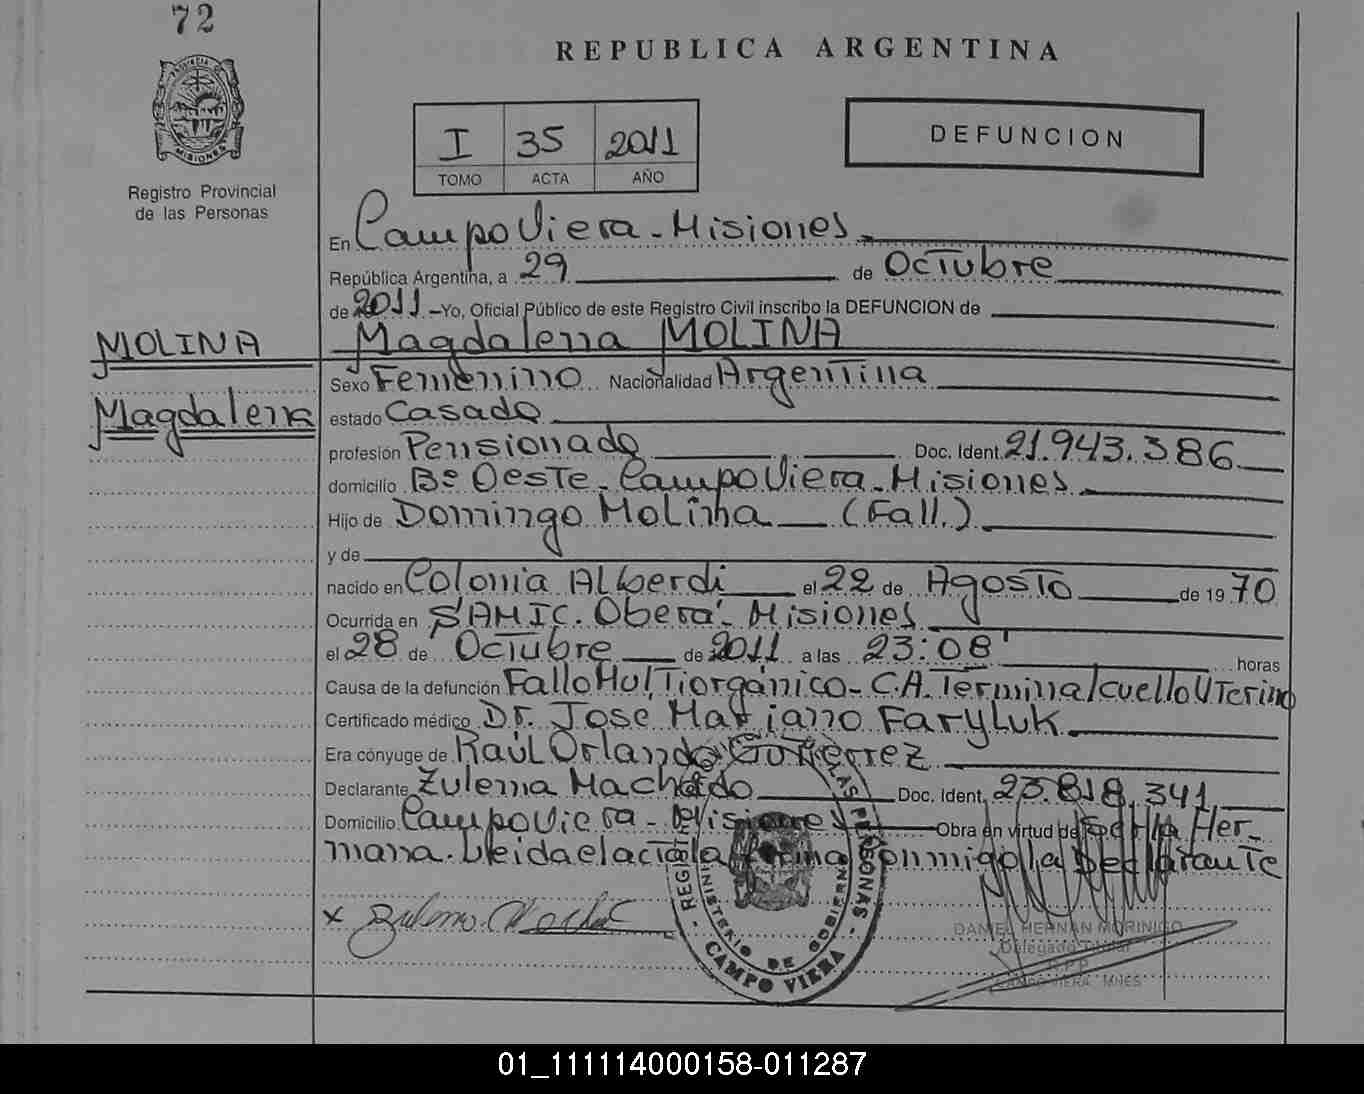 72
REPUBLICA ARGENTINA
PROVINCIA DE
MISIONES
Registro Provincial
de las Personas
I 35 2011
TOMO ACTA AÑO
DEFUNCION
En Campo Viera - Misiones
República Argentina, a 29 de Octubre
de 2011 -Yo, Oficial Público de este Registro Civil inscribo la DEFUNCION de
MOLINA Magdalena MOLINA
Sexo Femenino Nacionalidad Argentina
Magdalena estado Casada
profesión Pensionada Doc. Ident. 21.943.386
domicilio Bº Oeste - Campo Viera - Misiones
Hijo de Domingo Molina (Fall.)
y de
nacido en Colonia Alberdi el 22 de Agosto de 1970
Ocurrida en SAMIC. Oberá - Misiones
el 28 de Octubre de 2011 a las 23:08' horas
Causa de la defunción Fallo Multiorgánico - C.A. Terminal cuello Uterino
Certificado médico Dr. José Mariano Faryluk
Era cónyuge de Raúl Orlando Gutierrez
Declarante Zulema Machado Doc. Ident. 23.818.341
Domicilio Campo Viera - Misiones Obra en virtud de ser la Her-
mana. Leida el acta la firma conmigo la Declarante
x Zulema Machado
REGISTRO LAS PERSONAS
MINISTERIO DE GOBIERNO
CAMPO VIERA
DANIEL HERNAN MORINIGO
Delegado Titular
R.P.P.
CAMPO VIERA MNES
01_111114000158-011287